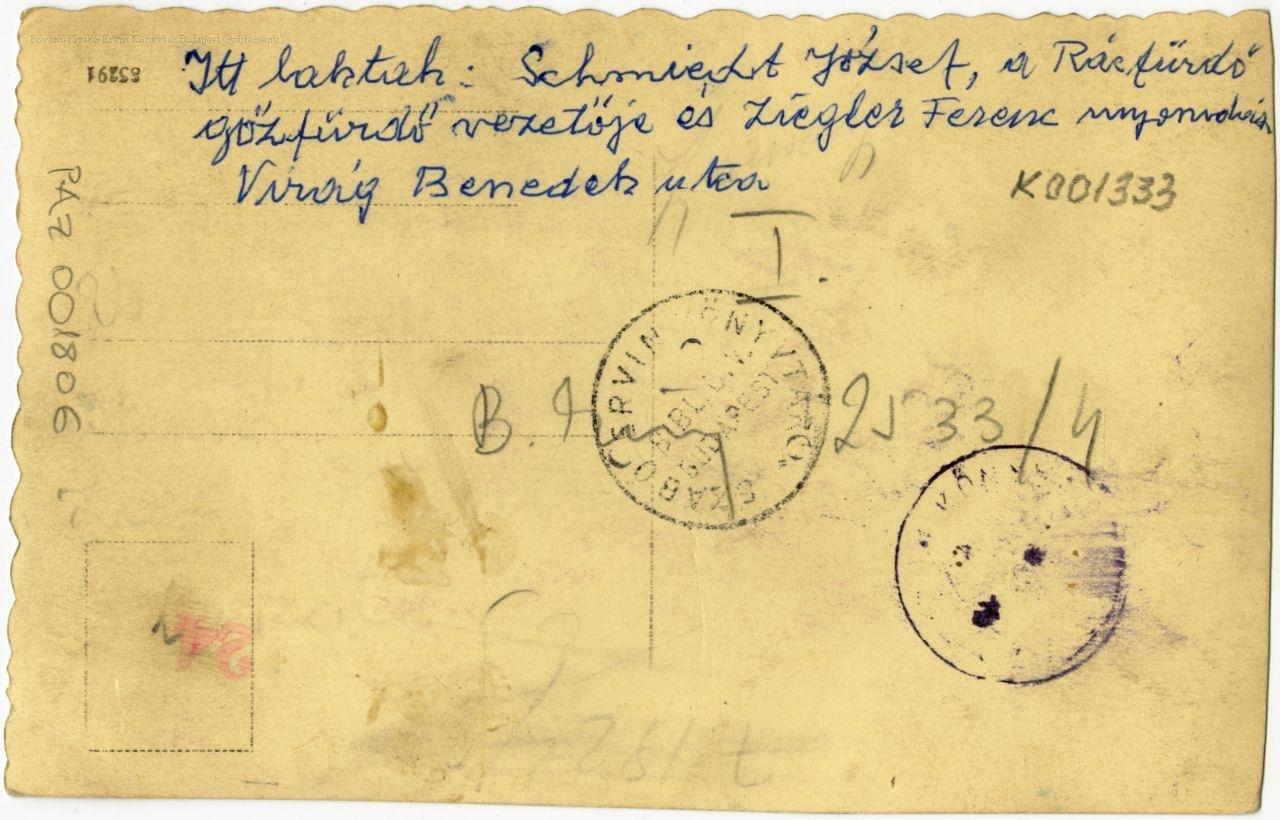 Fővárosi Szabó Ervin Könyvtár Budapest Gyűjtemény
85291
Itt laktak: Schmiedt József, a Rácfürdő
gőzfürdő vezetője és Ziegler Ferenc nyomdász
Virág Benedek utca
K001333
I.
PAZ 001806
SZABÓ ERVIN KÖNYVTÁR
BUDAPEST
B.
2533/4
KÖNYV